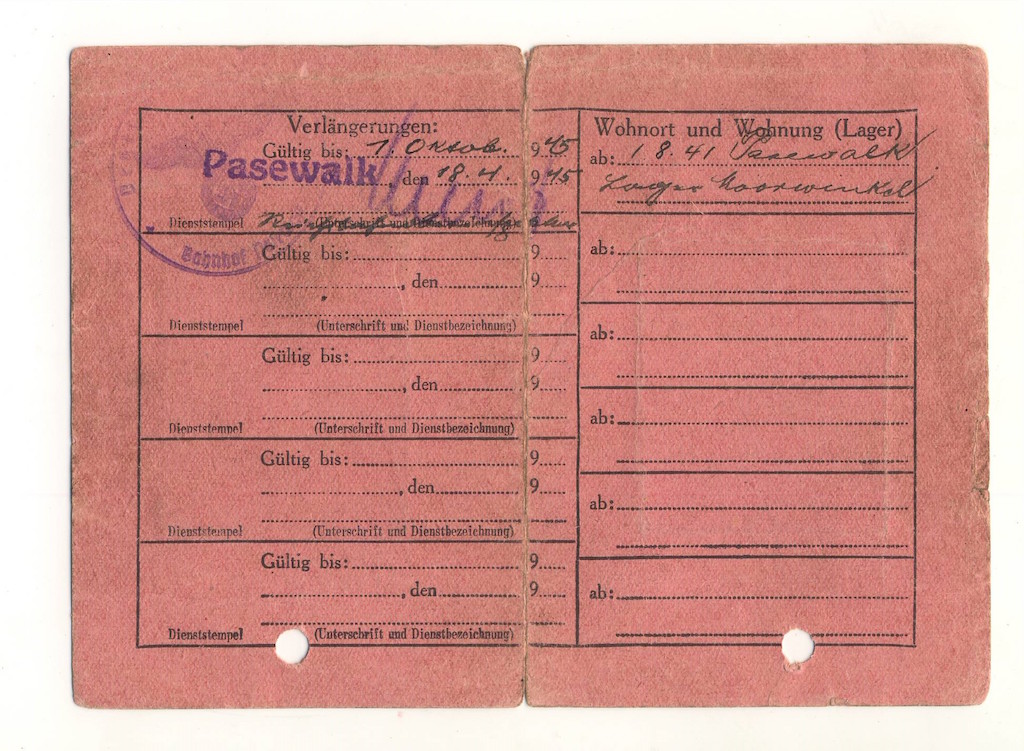 Verlängerungen:
Gültig bis: 1. Oktob. 1945
Pasewalk, den 18.4. 1945
Dienststempel (Unterschrift und Dienstbezeichnung)
Bahnhof
Gültig bis: 19
, den 19
Dienststempel (Unterschrift und Dienstbezeichnung)
Gültig bis: 19
, den 19
Dienststempel (Unterschrift und Dienstbezeichnung)
Gültig bis: 19
, den 19
Dienststempel (Unterschrift und Dienstbezeichnung)
Gültig bis: 19
, den 19
Dienststempel (Unterschrift und Dienstbezeichnung)
Wohnort und Wohnung (Lager)
ab: 1 8. 41 Pasewalk
Lager Moorwinkel
ab:
ab:
ab:
ab:
ab: